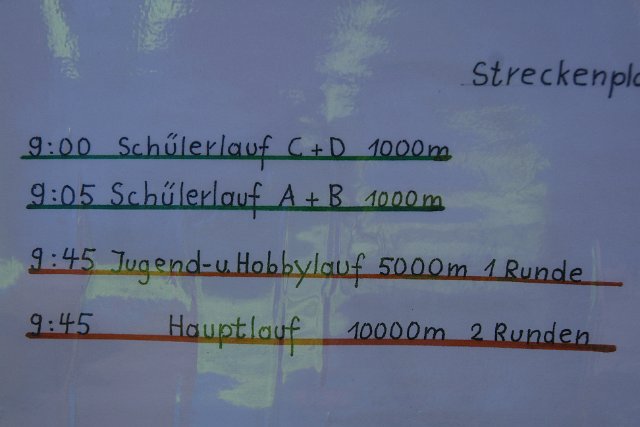 9:00 Schülerlauf C+D 1000m
9:05 Schülerlauf A+B 1000m
9:45 Jugend-u. Hobbylauf 5000m 1 Runde
9:45 Hauptlauf 10000m 2 Runden